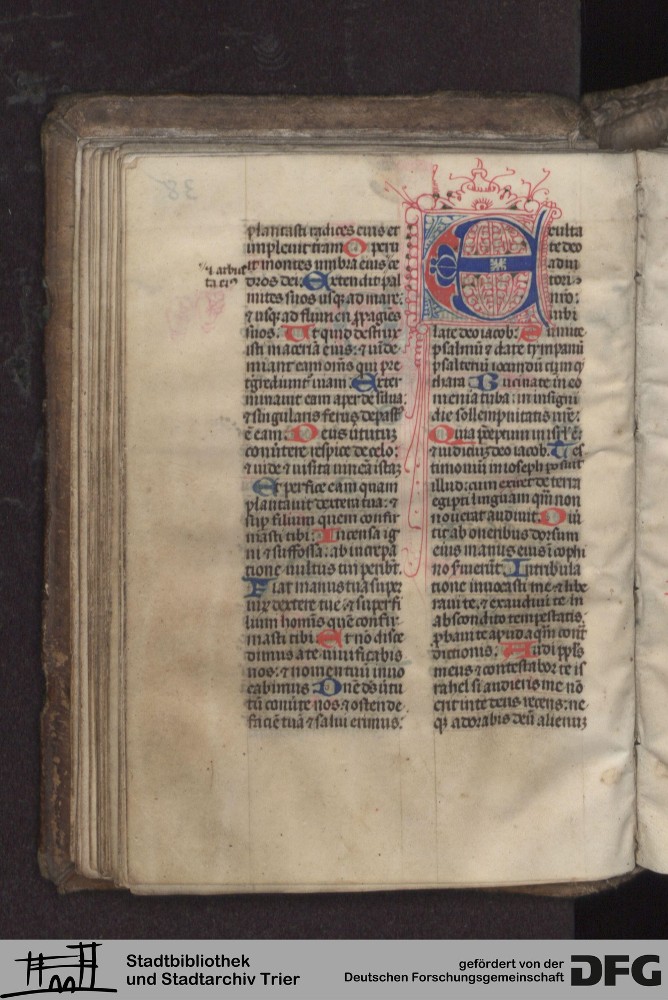 plantasti radices eius et
impleuit t̄ram O peru
it montes umbra eius ⁊ ar
bustaei⁹
dros dei. Extendit pal
mites suos usq; ad mare:
⁊ usq; ad flumen ꝓpagīes
suos. Ut quid destrux
isti maceriā eius: ⁊ uīde
miant eam om̄s qui pre
t̄grediunt̄ uiam. Exter
minauit eam aper de silua
⁊ singularis ferus depast⁹
ē eam. Deus uirtutū
conūtere respice de celo:
⁊ uide ⁊ uisita uineā istaȝ
Et perfice eam quam
plantauit dextera tua: ⁊
sup̄ filium quem confir
masti tibi. Incensa ig
ni ⁊ suffossa: ab increpa
tione uultus tui peribt̄.
Fiat manus tua super
uirū dextere tue: ⁊ superfi
lium hominis quē confir
masti tibi. Et nō disce
dimus a te uiuificabis
nos: ⁊ nomen tuū inuo
cabimus. Dn̄e ds̄ uirtu
tū conūte nos ⁊ ostende
faciē tuā ⁊ salui erimus.
Exulta
te deo
adiu
tori
nr̄o:
iubi
late deo iacob. Sumite
psalmū ⁊ date tympanū
psalteriū iocundū cum cy
thara. Bucinate in eo
menia tuba: in insigni
die sollempnitatis nr̄e.
Quia p̄ceptum in isrl̄ ē:
⁊ iudiciuȝ deo iacob. Tes
timoniū in ioseph posuit
illud: cum exiret de terra
egipti linguam qm̄ non
nouerat audiuit. Diū
tit ab oneribus dorsum
eius manus eius ī cophi
no s̄uierūt. In tribula
tione inuocasti me ⁊ libe
raui te: ⁊ exaudiui te in
abscondito tempestatis.
ꝓbaui te apud aquā cont̄
dictionis. Audi ppl̄s
meus ⁊ contestabor te is
rahel si audieris me nō
erit in te deus recens: ne
qꝫ adorabis deū alienuȝ
Stadtbibliothek
und Stadtarchiv Trier
gefördert von der
Deutschen Forschungsgemeinschaft
DFG